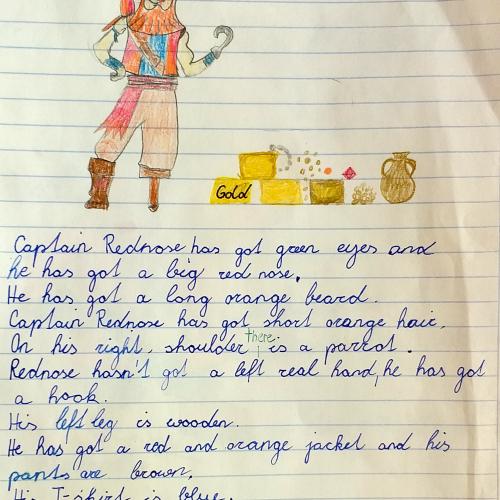 Gold
Captain Rednose has got green eyes and
he has got a big red nose.
He has got a long orange beard.
Captain Rednose has got short orange hair.
On his right, shoulder there is a parrot.
Rednose hasn't got a left real hand, he has got
a hook.
His left leg is wooden.
He has got a red and orange jacket and his
pants are brown.
His T-shirt is blue.